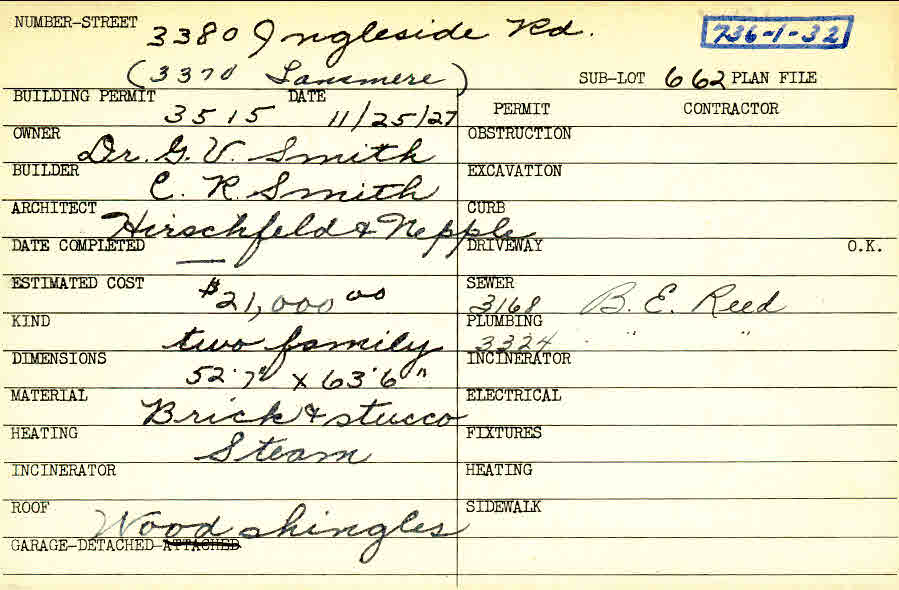 NUMBER-STREET 3380 Ingleside Rd. 736-1-32
(3370 Lansmere) SUB-LOT 662 PLAN FILE
BUILDING PERMIT 3515 DATE 11/25/27 PERMIT CONTRACTOR
OWNER Dr. G. V. Smith OBSTRUCTION
BUILDER C. R. Smith EXCAVATION
ARCHITECT Hirschfeld & Nepple CURB
DATE COMPLETED — DRIVEWAY O.K.
ESTIMATED COST $21,000 00 SEWER 3168 B. E. Reed
KIND two family PLUMBING 3324 " "
DIMENSIONS 52'7" X 63'6" INCINERATOR
MATERIAL Brick & stucco ELECTRICAL
HEATING Steam FIXTURES
INCINERATOR HEATING
ROOF Wood shingles SIDEWALK
GARAGE-DETACHED-ATTACHED